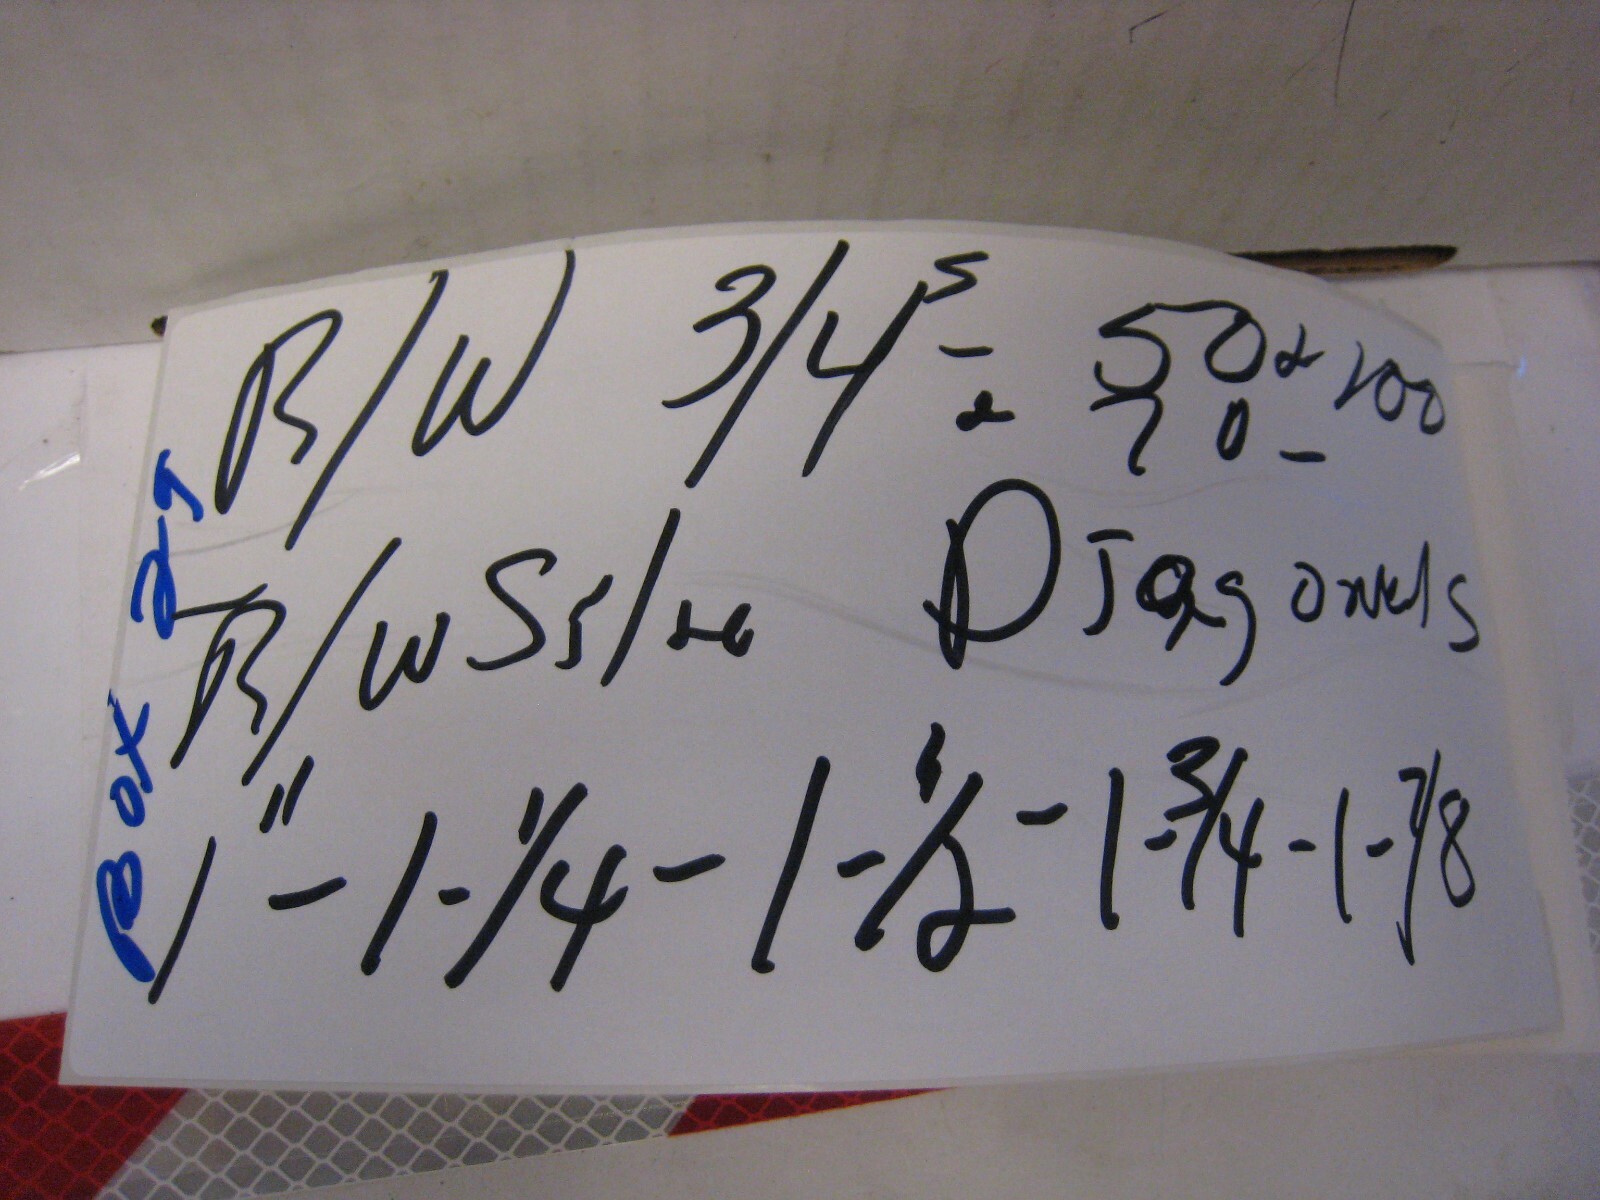 R/W 3/4s - 50 & 100
& 70 -
R/W Diagonals
1" - 1-1/4 - 1-1/2 - 1-3/4 - 1-7/8
Box 29